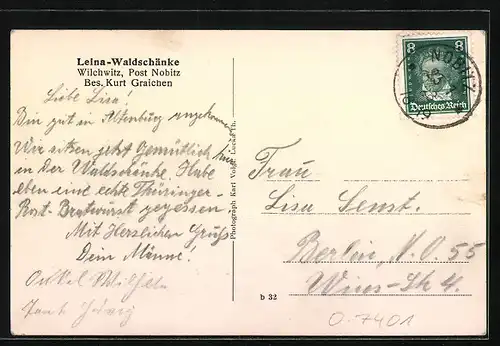 Leina-Waldschänke
Wilchwitz, Post Nobitz
Bes. Kurt Graichen
Liebe Lisa!
Bin gut in Altenburg angekommen
Wir sitzen jetzt Gemütlich hier
in der Waldschänke. Habe
eben eine echte Thüringer-
Rost-Bratwurst gegessen.
Mit Herzlichen Gruß
Dein Männe.
Onkel Wilhelm
Tante Hedwig
Photograph Karl Vogel, Lucka Th.
b 32
8 8
Deutsches Reich
NOBITZ
Frau
Lisa Senst.
Berlin, N. O. 55
Wins-Str 4.
0-7401